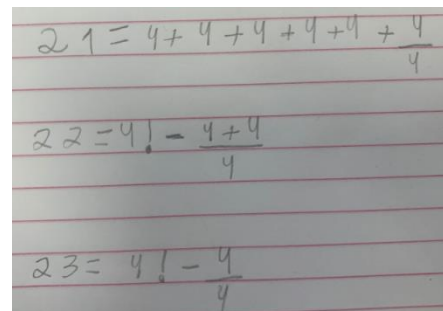 21 = 4 + 4 + 4 + 4 + 4 + 4/4
22 = 4! - (4 + 4)/4
23 = 4! - 4/4